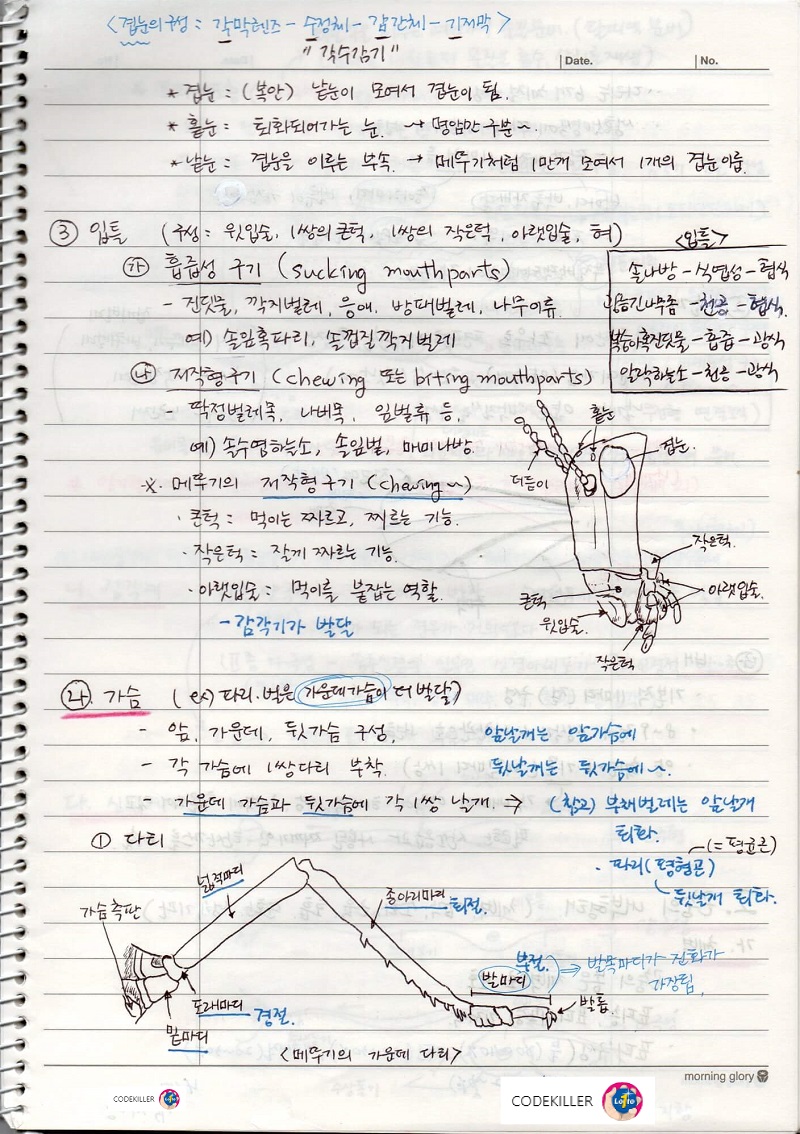 <겹눈의구성 : 각막렌즈 - 수정체 - 감간체 - 기저막>
"각수감기"
Date.
No.
* 겹눈 : (복안) 낱눈이 모여서 겹눈이 됨.
* 홑눈 : 퇴화되어가는 눈. → 명암만 구분~.
* 낱눈 : 겹눈을 이루는 부속. → 메뚜기처럼 1만개 모여서 1개의 겹눈 이룸.
③ 입틀 (구성 : 윗입술, 1쌍의 큰턱, 1쌍의 작은턱, 아랫입술, 혀)
<입틀>
솔나방 - 식엽성 - 협식
- 천공 - 협식.
복숭아혹진딧물 - 흡즙 - 광식
알락하늘소 - 천공 - 광식
㉮ 흡즙성 구기 (sucking mouthparts)
- 진딧물, 깍지벌레, 응애, 방패벌레, 나무이류.
예) 솔잎혹파리, 솔껍질깍지벌레
㉯ 저작형구기 (chewing 또는 biting mouthparts)
딱정벌레목, 나비목, 잎벌류 등.
예) 솔수염하늘소, 솔잎벌, 매미나방.
※ 메뚜기의 저작형구기 (chewing~)
· 큰턱 : 먹이는 짜르고, 찌르는 기능.
· 작은턱 : 잘게 짜르는 기능.
· 아랫입술 : 먹이를 붙잡는 역할.
- 감각기가 발달
홑눈
겹눈.
더듬이
작은턱.
큰턱
아랫입술.
윗입술.
작은턱
라. 가슴 (ex) 파리·벌은 가운데가슴이 더 발달)
- 앞, 가운데, 뒷가슴 구성.
앞날개는 앞가슴에
- 각 가슴에 1쌍다리 부착.
뒷날개는 뒷가슴에~.
- 가운데 가슴과 뒷가슴에 각 1쌍 날개. ⇒ (참고) 부채벌레는 앞날개
퇴화.
① 다리
(=평균곤)
· 파리(평형곤)
뒷날개 퇴화.
넓적마디
종아리마디
퇴절.
가슴측판
부절.
발마디
⇒ 발목마디가 진화가
가장됨.
도래마디
경절.
밑마디
발톱.
<메뚜기의 가운데 다리>
morning glory
CODEKILLER
Lotto
CODEKILLER
Lotto